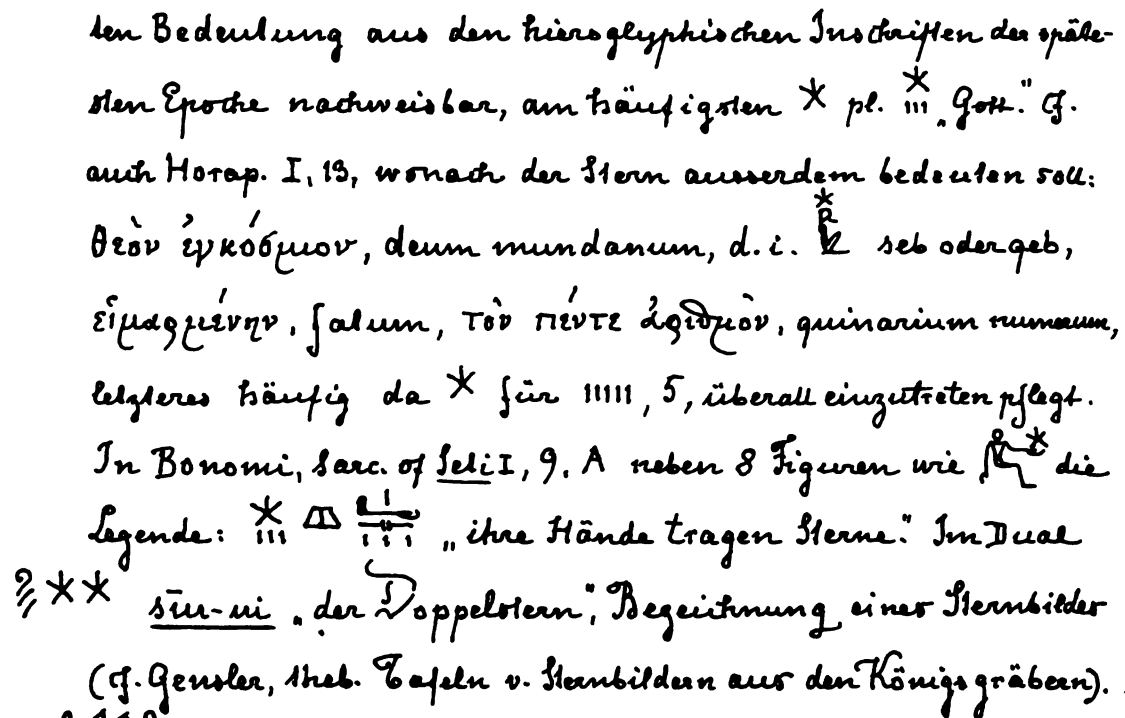 ten Bedeutung aus den hieroglyphischen Inschriften der späte-
sten Epoche nachweisbar, am häufigsten 𓇼 pl. 𓇼𓏥 „Gott." Cf.
auch Horap. I, 13, wonach der Stern ausserdem bedeuten soll:
θεὸν ἐγκόσμιον, deum mundanum, d. i. seb oder geb,
εἱμαρμένην, fatum, τὸν πέντε ἀριθμὸν, quinarium numerum,
letzteres häufig da 𓇼 für 𓏾, 5, überall einzutreten pflegt.
In Bonomi, Sarc. of Seti I, 9, A neben 8 Figuren wie die
Legende: 𓇼𓏥 „ihre Hände tragen Sterne." Im Dual
𓇼𓇼 sīu-ui „der Doppelstern", Bezeichnung eines Sternbildes
(cf. Gensler, theb. Tafeln v. Sternbildern aus den Königsgräbern).